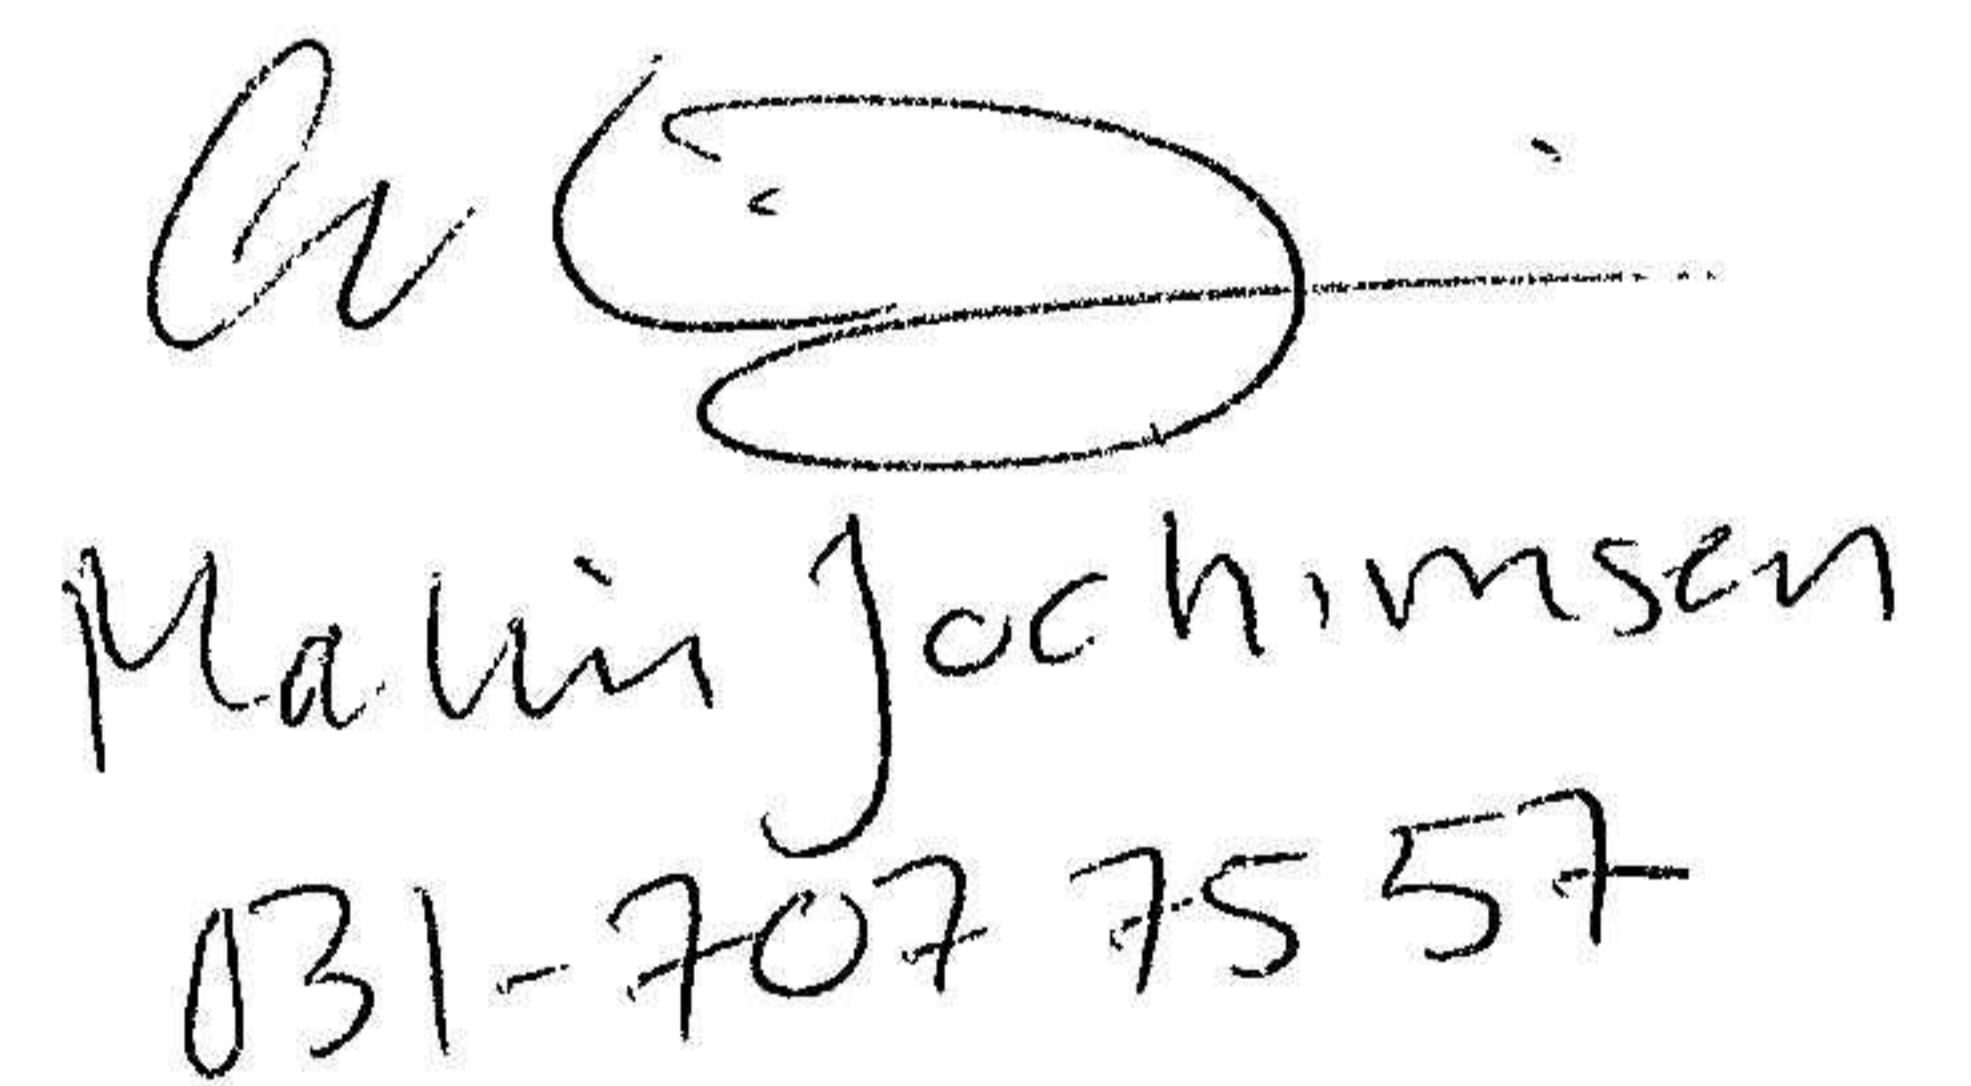 Malin Jochimsen
031-707 75 57